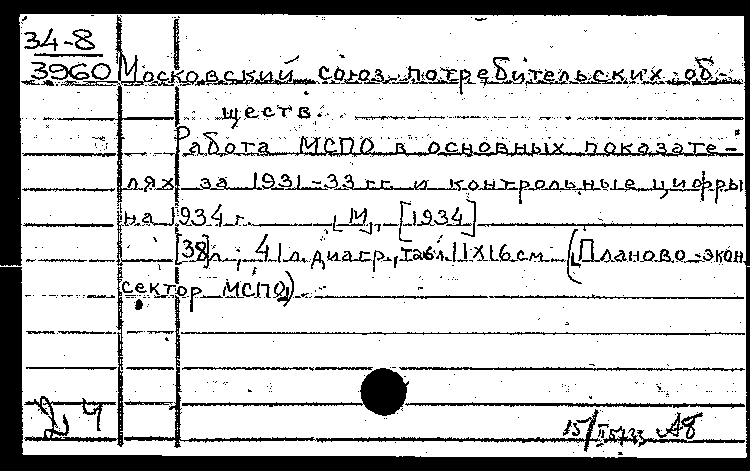 34-8
3960 Московский союз потребительских об-
ществ.
Работа МСПО в основных показате-
лях за 1931-33 гг. и контрольные цифры
на 1934 г. [М., [1934]
[38]л., 41 л. диагр., табл. 11X16 см (Планово-экон
сектор МСПО)
15/II